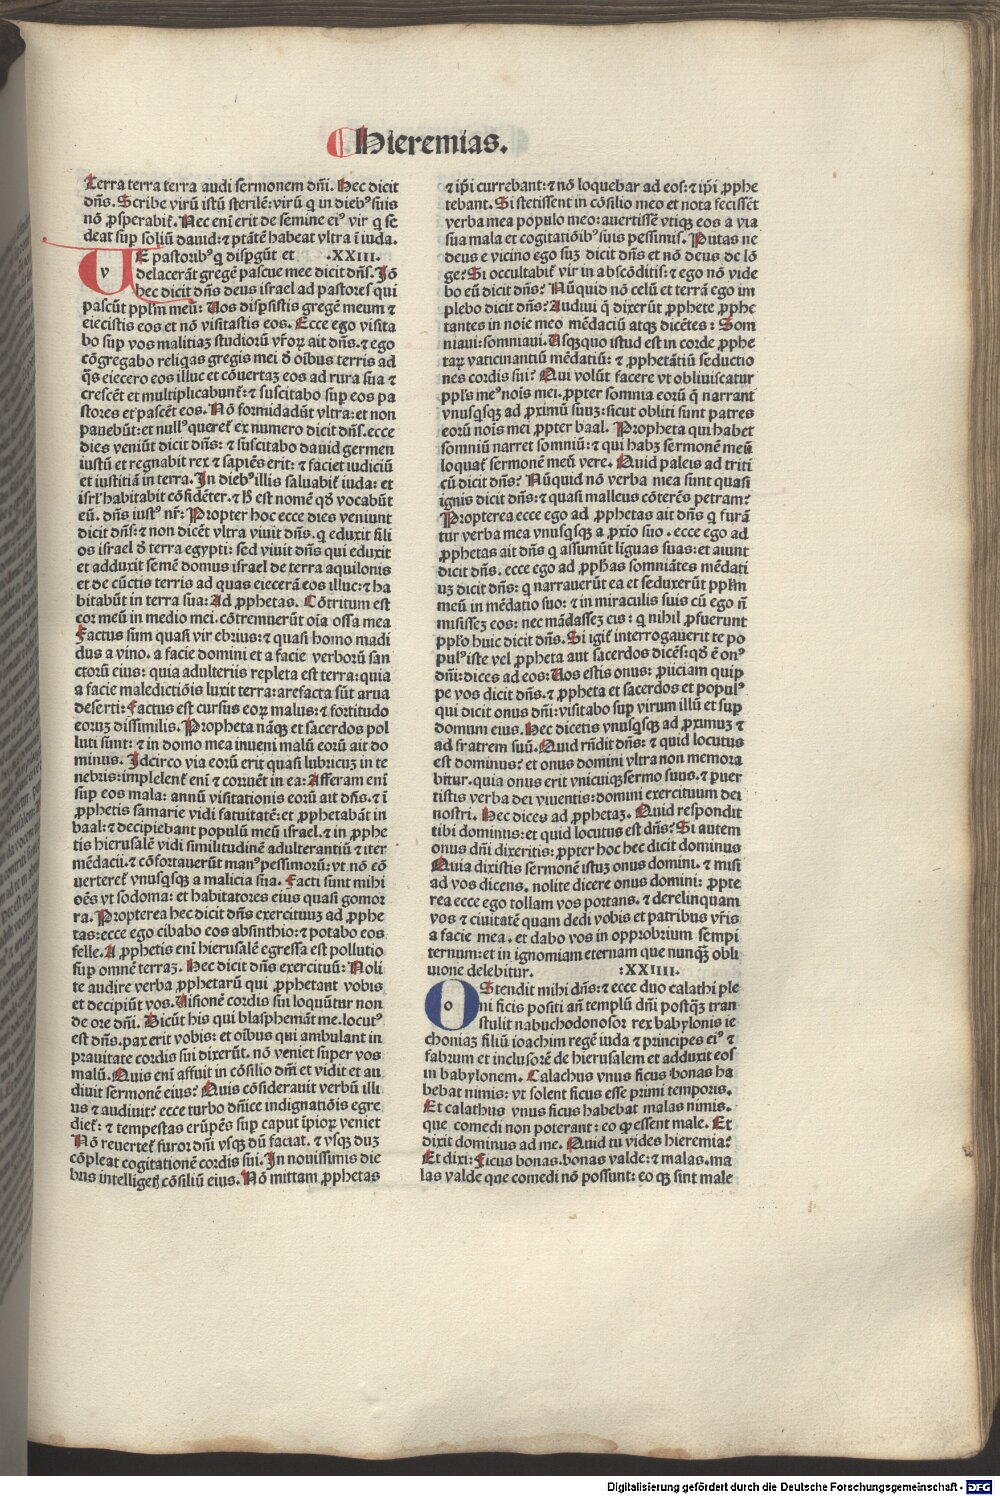 Hieremias.
Terra terra terra audi sermonem dñi. Hec dicit
dñs. Scribe virũ istũ sterilẽ: virũ q̃ in dieb⁹ suis
nõ ꝓsperabiť. Nec eni erit de semine ei⁹ vir q̃ se
deat suꝑ soliũ dauid: ⁊ ptãtẽ habeat vltra ĩ iuda.
VE pastorib⁹ q̃ disꝑgũt et .XXIII.
delacerãt gregẽ pascue mee dicit dñs. Jõ
hec dicit dñs deus israel ad pastores qui
pascũt pplm̃ meũ: Uos disꝑsistis gregẽ meum ⁊
eiecistis eos et nõ visitastis eos. Ecce ego visita
bo suꝑ vos malitiaꝫ studiorũ vr̃oꝝ ait dñs. ⁊ ego
cõgregabo reliq̃as gregis mei ð oĩbus terris ad
q̃s eiecero eos illuc et cõuertaꝫ eos ad rura sua ⁊
crescẽt et multiplicabunť: ⁊ suscitabo suꝑ eos pa
stores et pascẽt eos. Nõ formidadũt vltra: et non
pauebũt: et null⁹ quereť ex numero dicit dñs. ecce
dies veniũt dicit dñs: ⁊ suscitabo dauid germen
iustũ et regnabit rex ⁊ sapiẽs erit: ⁊ faciet iudiciũ
et iustitiã in terra. In dieb⁹ illis saluabiť iuda: et
isrl' habitabit cõfidẽter. ⁊ h̃ est nomẽ qð vocabũt
eũ. dñs iust⁹ nr̃: Propter hoc ecce dies veniunt
dicit dñs: ⁊ non dicẽt vltra viuit dñs. q̃ eduxit fili
os israel ð terra egypti: sed viuit dñs qui eduxit
et adduxit semẽ domus israel de terra aquilonis
et de cũctis terris ad quas eiecerã eos illuc: ⁊ ha
bitabũt in terra sua: Ad ꝓphetas. Cõtritum est
cor meũ in medio mei. cõtremuerũt oĩa ossa mea
Factus sum quasi vir ebrius: ⁊ quasi homo madi
dus a vino. a facie domini et a facie verborũ san
ctorũ eius: quia adulteriis repleta est terra: quia
a facie maledictiõis luxit terra: arefacta sũt arua
deserti: Factus est cursus eoꝝ malus: ⁊ fortitudo
eoruꝫ dissimilis. Propheta nãq̃ et sacerdos pol
luti sunt: ⁊ in domo mea inueni malũ eorũ ait do
minus. Idcirco via eorũ erit quasi lubricuꝫ in te
nebris: impellenť eni ⁊ corruẽt in ea: Afferam eni
suꝑ eos mala: annũ visitationis eorũ ait dñs. ⁊ ĩ
ꝓphetis samarie vidi fatuitatẽ: et ꝓphetabãt in
baal: ⁊ decipiebant populũ meũ israel. ⁊ in ꝓphe
tis hierusalẽ vidi similitudinẽ adulterantiũ ⁊ iter
mẽdacii: ⁊ cõfortauerũt man⁹ pessimorũ: vt nõ cõ
uertereť vnusqsqꝫ a malicia sua. Facti sunt mihi
oẽs vt sodoma: et habitatores eius quasi gomor
ra. Propterea hec dicit dñs exercituuꝫ ad ꝓphe
tas: ecce ego cibabo eos absinthio: ⁊ potabo eos
felle. A ꝓphetis eni hierusalẽ egressa est pollutio
suꝑ omnẽ terraꝫ. Hec dicit dñs exercituũ: Noli
te audire verba ꝓphetarũ qui ꝓphetant vobis
et decipiũt vos. Uisionẽ cordis sui loquũtur non
de ore dñi. Dicũt his qui blasphemãt me. locut⁹
est dñs. pax erit vobis: et oĩbus qui ambulant in
prauitate cordis sui dixerũt. nõ veniet super vos
malũ. Quis eni affuit in cõsilio dñi et vidit et au
diuit sermonẽ eius? Quis cõsiderauit verbũ illi
us ⁊ audiuit? ecce turbo dñice indignatiõis egre
dieť: ⁊ tempestas erũpẽs suꝑ caput ĩpioꝝ veniet
Nõ reuerteť furor dñi vsqꝫ dũ faciat. ⁊ vsqꝫ duꝫ
cõpleat cogitationẽ cordis sui. In nouissimis die
bus intelligetꝭ cõsiliũ eius. Nõ mittam ꝓphetas
⁊ ip̃i currebant: ⁊ nõ loquebar ad eos: ⁊ ip̃i ꝓphe
tebant. Si stetissent in cõsilio meo et nota fecissẽt
verba mea populo meo: auertissẽ vtiqꝫ eos a via
sua mala et cogitatiõib⁹ suis pessimis. Putas ne
deus e vicino ego suꝫ dicit dñs et nõ deus de lõ
ge? Si occultabiť vir in abscõditis: ⁊ ego nõ vide
bo eũ dicit dñs? Nũquid nõ celũ et terrã ego im
plebo dicit dñs? Audiui q̃ dixerũt ꝓphete ꝓphe
tantes in noĩe meo mẽdaciũ atqꝫ dicẽtes: Som
niaui: somniaui. Usqꝫquo istud est in corde ꝓphe
taꝝ vaticinantiũ mẽdatiũ: ⁊ ꝓphetãtiũ seductio
nes cordis sui? Qui volũt facere vt obliuiscatur
ppl's me⁹ noĩs mei. ꝓpter somnia eorũ q̃ narrant
vnusqsqꝫ ad ꝓximũ suuꝫ: sicut obliti sunt patres
eorũ noĩs mei ꝓpter baal. Propheta qui habet
somniũ narret somniũ: ⁊ qui habꝫ sermonẽ meũ
loquať sermonẽ meũ vere. Quid paleis ad triti
cũ dicit dñs? Nũquid nõ verba mea sunt quasi
ignis dicit dñs: ⁊ quasi malleus cõterẽs petram?
Propterea ecce ego ad ꝓphetas ait dñs q̃ furã
tur verba mea vnusqsqꝫ a ꝓxio suo. ecce ego ad
ꝓphetas ait dñs q̃ assumũt liguas suas: et aiunt
dicit dñs. ecce ego ad ꝓph̃as somniãtes mẽdati
uꝫ dicit dñs: q̃ narrauerũt ea et seduxerũt pplm̃
meũ in mẽdatio suo: ⁊ in miraculis suis cũ ego ñ
misisseꝫ eos: nec mãdasseꝫ eis: q̃ nihil ꝓfuerunt
ppl'o huic dicit dñs. Si igiť interrogauerit te po
pul⁹ iste vel ꝓpheta aut sacerdos dicẽs: qð ẽ on⁹
dñi: dices ad eos: Uos estis onus: ꝓiiciam quiꝑ
pe vos dicit dñs. ⁊ ꝓpheta et sacerdos et popul⁹
qui dicit onus dñi: visitabo suꝑ virum illũ et suꝑ
domum eius. Hec dicetis vnusqsqꝫ ad ꝓximuꝫ ⁊
ad fratrem suũ. Quid rñdit dñs: ⁊ quid locutus
est dominus? et onus domini vltra non memora
bitur. quia onus erit vnicuiqꝫ sermo suus. ⁊ ꝑuer
tistis verba dei viuentis: domini exercituum dei
nostri. Hec dices ad ꝓphetaꝫ. Quid respondit
tibi dominus: et quid locutus est dñs? Si autem
onus dñi dixeritis: ꝓpter hoc hec dicit dominus
Quia dixistis sermonẽ istuꝫ onus domini. ⁊ misi
ad vos dicens. nolite dicere onus domini: ꝓpte
rea ecce ego tollam vos portans. ⁊ derelinquam
vos ⁊ ciuitatẽ quam dedi vobis et patribus vr̃is
a facie mea. et dabo vos in opprobrium sempi
ternum: et in ignomiam eternam que nunqꝫ̃ obli
uione delebitur. :XXIIII.
OStendit mihi dñs: ⁊ ecce duo calathi ple
ni ficis positi añ templũ dñi postqꝫ̃ tran
stulit nabuchodonosor rex babylonis ie
choniaꝫ filiũ ioachim regẽ iuda ⁊ principes ei⁹ ⁊
fabrum et inclusorẽ de hierusalem et adduxit eos
in babylonem. Calachus vnus ficus bonas ha
bebat nimis: vt solent ficus esse primi temporis.
Et calathus vnus ficus habebat malas nimis.
que comedi non poterant: eo ꝙ essent male. Et
dixit dominus ad me. Quid tu vides hieremia?
Et dixi: Ficus bonas. bonas valde: ⁊ malas. ma
las valde que comedi nõ possunt: eo qꝫ sint male
Digitalisierung gefördert durch die Deutsche Forschungsgemeinschaft - DFG